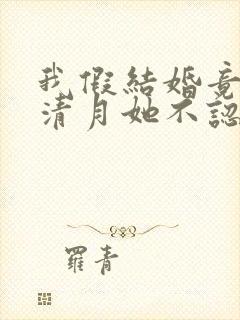 我假結婚竟
清月她不認
羅青